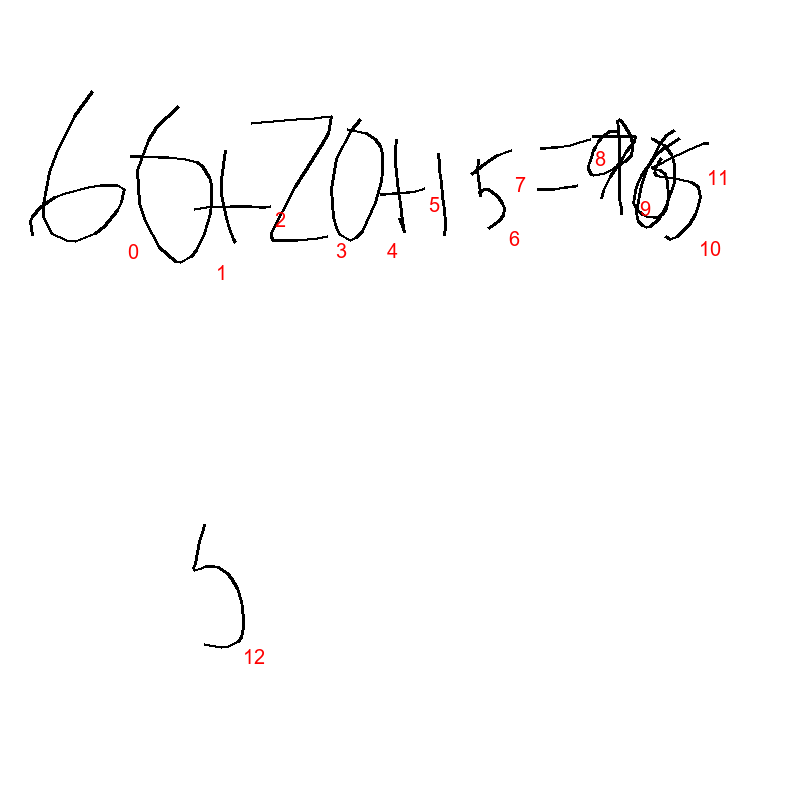 60+20+15=
5
0
1
2
3
4
5
6
7
8
9
10
11
12